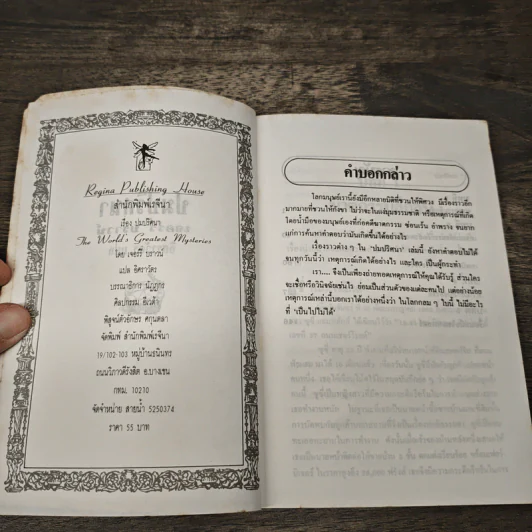 Regina Publishing House
สำนักพิมพ์เรจีนา
เรื่อง ปมปริศนา
The World's Greatest Mysteries
โดย เจอร์รี่ บราวน์
แปล อิศราวัตร
บรรณาธิการ นัฏฐกร
ศิลปกรรม อิเวต้า
พิสูจน์ตัวอักษร ศกุนตลา
จัดพิมพ์ สำนักพิมพ์เรจีนา
19/102-103 หมู่บ้านธนินทร
ถนนวิภาวดีรังสิต อ.บางเขน
กทม. 10210
จัดจำหน่าย สายน้ำ 5250374
ราคา 55 บาท
คำบอกกล่าว
โลกมนุษย์เรานี้ยังมีอีกหลายมิติที่ชวนให้พิศวง มีเรื่องราวอีก
มากมายที่ชวนให้กังขา ไม่ว่าจะในแง่มุมธรรมชาติ หรือเหตุการณ์ที่เกิด
โดยน้ำมือของมนุษย์เองที่ก่อคดีฆาตกรรม ซ่อนเร้น อำพราง จนยาก
แก่การค้นหาคำตอบว่ามันเกิดขึ้นได้อย่างไร
เรื่องราวต่าง ๆ ใน 'ปมปริศนา' เล่มนี้ ยังหาคำตอบไม่ได้
จนทุกวันนี้ว่า เหตุการณ์เกิดได้อย่างไร และใคร เป็นผู้กระทำ
เรา.... จึงเป็นเพียงถ่ายทอดเหตุการณ์ให้คุณได้รับรู้ ส่วนใคร
จะเชื่อหรือวินิจฉัยเช่นไร ย่อมเป็นส่วนตัวของแต่ละคนไป แต่อย่างน้อย
เหตุการณ์เหล่านี้บอกเราได้อย่างหนึ่งว่า ในโลกกลม ๆ ใบนี้ ไม่มีอะไร
ที่ 'เป็นไปไม่ได้'